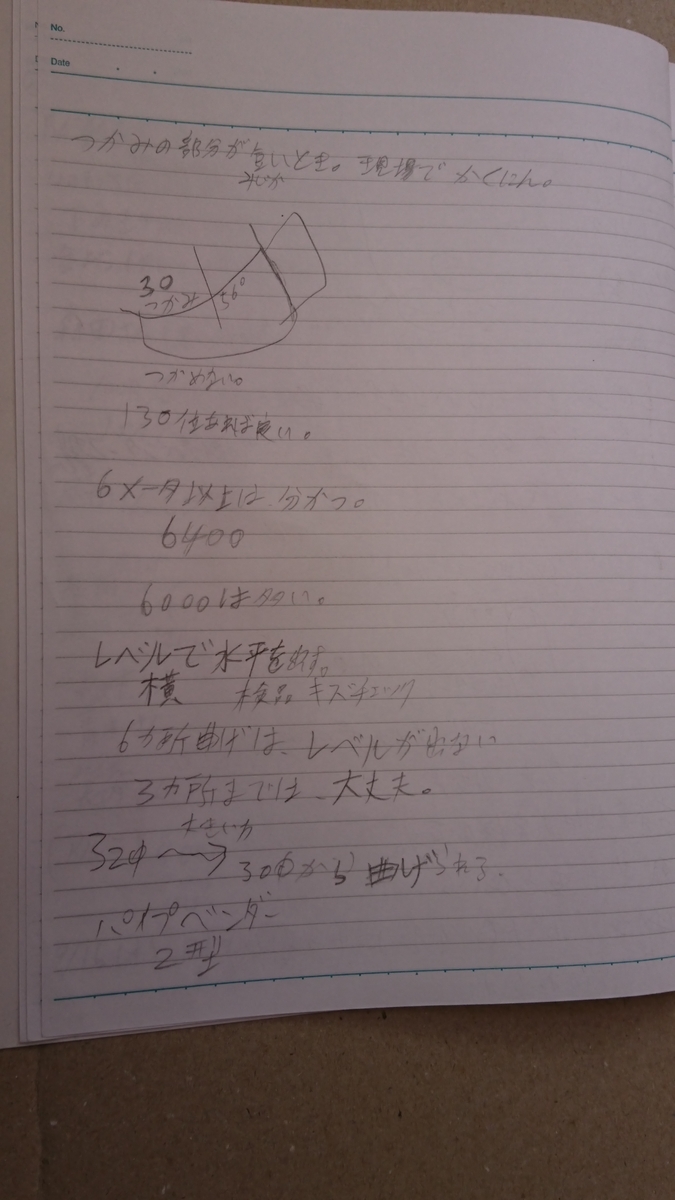 No.
Date
つかみの部分が いとき。現場で かくにん。
30
つかみ
56°
つかめない。
130位あれば良い。
6メータ以上は、分かつ。
6400
6000は多い。
レベルで水平を出す。
横 検品。キズチェック
6ヵ所曲げは、レベルが出ない
3ヵ所までは、大丈夫。
大きいか
32φ → 30φから曲げられる.
パイプベンダー
2型